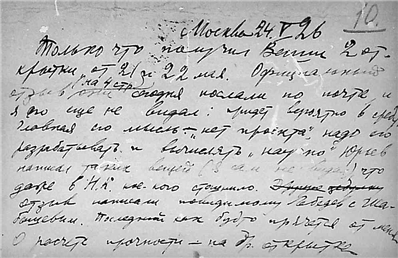 10.
Москва 24.V 26
Только что получил Ваши 2 от-
крытки от 21 и 22 мая. Официальный
отзыв на 4 стр. сегодня послали по почте и
я его еще не видал: придет вероятно в среду.
Главная его мысль — "нет проекта" надо его
разрабатывать и вычислять, "научно" Юрьев
написал таких вещей (я сам не видал) что
даже в Н.К. кое-кого стошнило.
отзыв написали повидимому Лебедев с Ша-
башевым. Последний как будто прячется от меня
О расчете прочности — на др. открытке